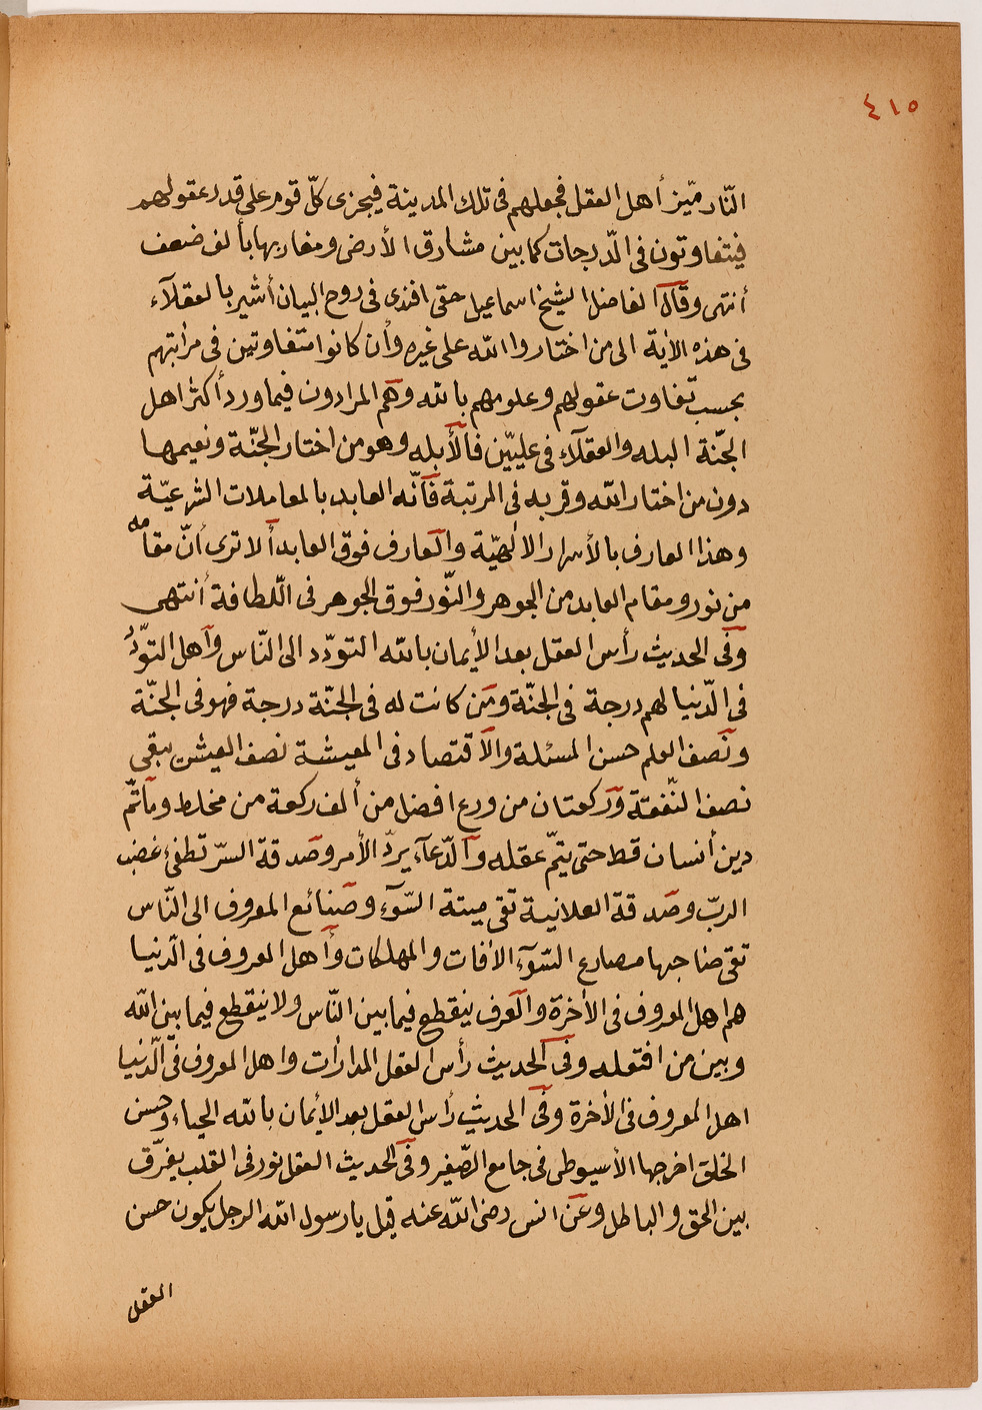 ٤١٥
النّار ميّز أهل العقل فجعلهم فى تلك المدينة فيجزى كلّ قوم على قدر عقولهم
فيتفاوتون فى الدّرجات كما بين مشارق الأرض ومغاربها بألف ضعف
أنتهى وقال الفاضل الشيخ اسماعيل حقى افندى فى روح البيان أشير بالعقلآء
فى هذه الأية الى من اختاروا الله على غيره وأن كانوا متفاوتين فى مراتبهم
بحسب تفاوت عقولهم وعلومهم بالله وهم المرادون فيما ورد أكثر اهل
الجنّة البله والعقلآء فى عليّين فالأبله وهو من اختار الجنّة ونعيمها
دون من اختار الله وقربه فى المرتبة فأنّه العابد بالمعاملات الشرعيّة
وهذا العارف بالأسرار الالهيّة والعارف فوق العابد ألا ترى أنّ مقامه
من نور ومقام العابد من الجوهر والنّور فوق الجوهر فى اللّطافة أنتهى
وفى الحديث رأس العقل بعد الأيمان بالله التودّد الى النّاس وأهل التودّد
فى الدّنيا لهم درجة فى الجنّة ومن كانت له فى الجنّة درجة فهو فى الجنّة
ونصف العلم حسن المسئلة والأقتصاد فى المعيشة نصف العيش يبقى
نصف النّفقة وركعتان من ورع افضل من ألف ركعة من مخلط وما تمّ
دين أنسان قط حتى يتمّ عقله والدّعآء يردّ الأمر وصدقة السرّ تطفئ غضب
الربّ وصدقة العلانية تقى ميتة السّوء وصنائع المعروف الى النّاس
تقى صاحبها مصارع السّوء الأفات والمهلكات وأهل المعروف فى الدّنيا
هم اهل المعروف فى الأخرة والعرف ينقطع فيما بين النّاس ولا ينقطع فيما بين الله
وبين من افتعله وفى الحديث رأس العقل المدارات واهل المعروف فى الدّنيا
اهل المعروف فى الأخرة وفى الحديث رأس العقل بعد الأيمان بالله الحياء وحسن
الخلق اخرجها الأسيوطى فى جامع الصّغير وفى الحديث العقل نور فى القلب يفرّق
بين الحق والباطل وعن انس رضى الله عنه قيل يا رسول الله الرجل يكون حسن
العقل